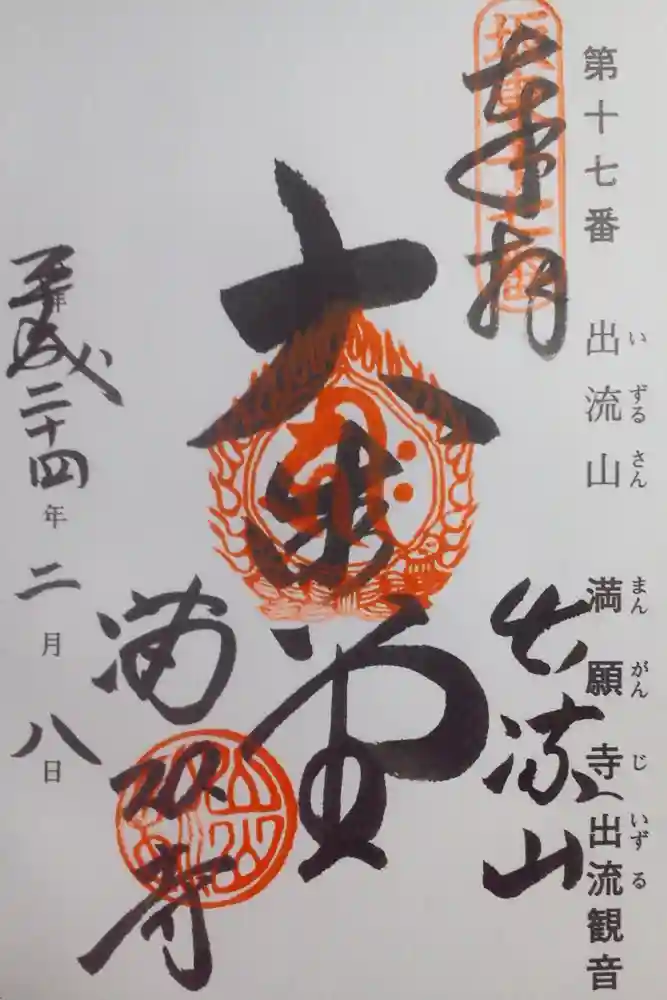 第十七番 出流山 満願寺(出流観音
いずるさん まんがんじ いずる
坂東十七番
奉拝
出流山
大悲堂
満願寺
平成二十四年二月八日